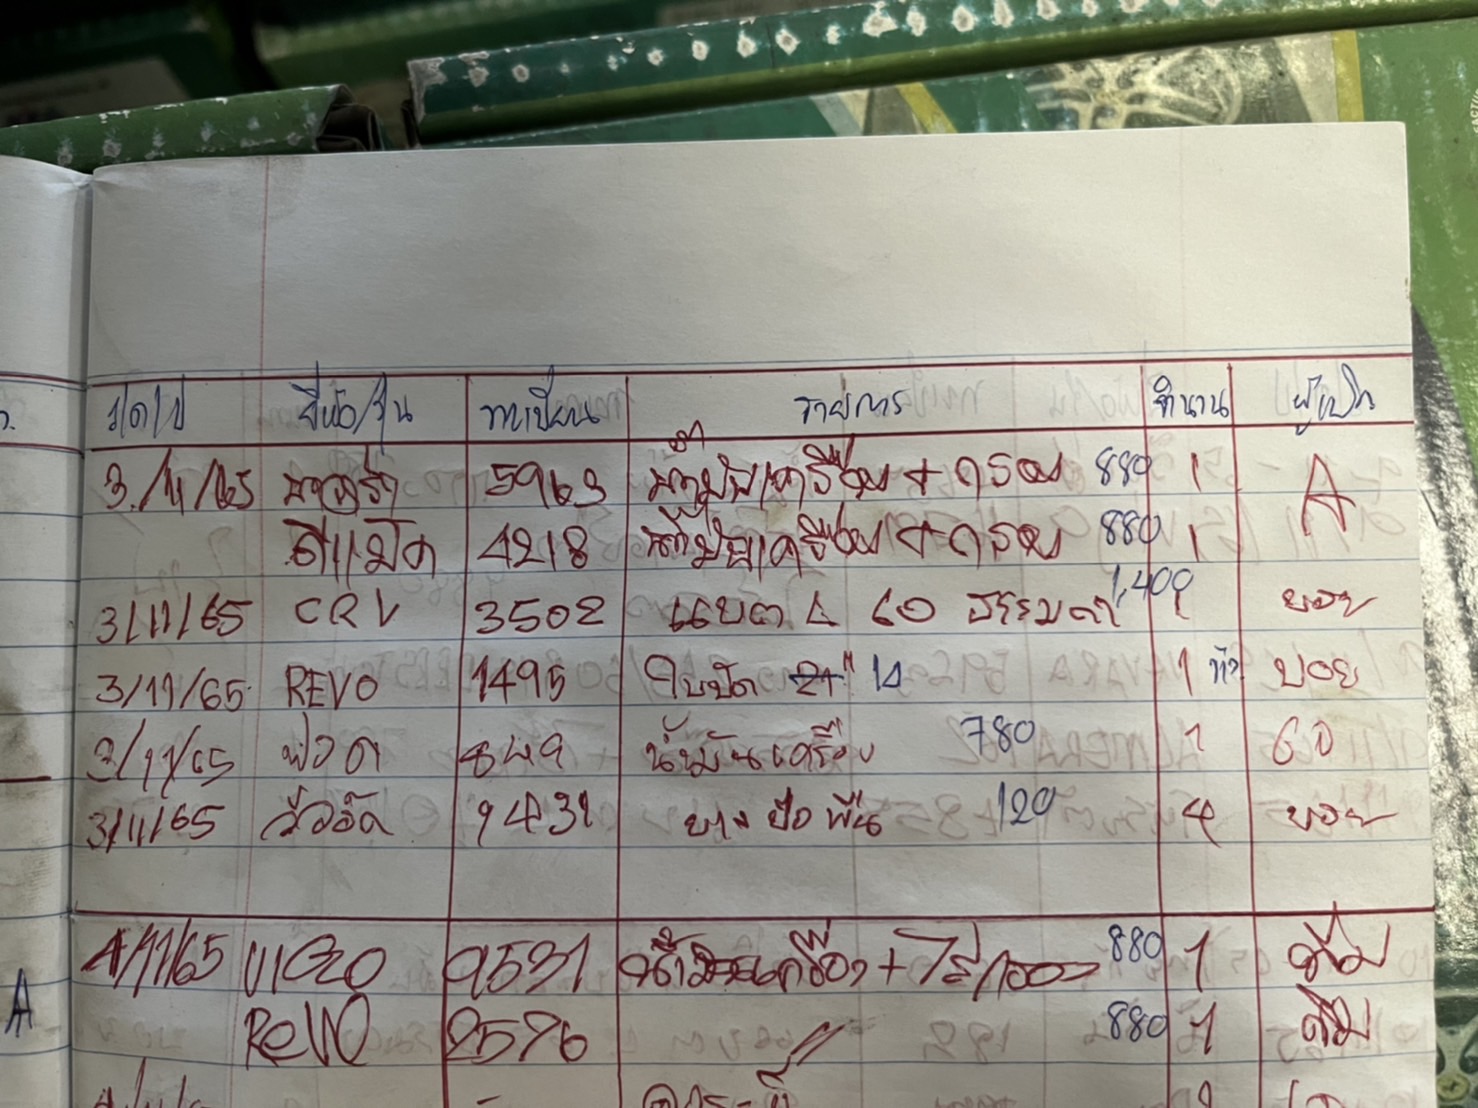 ว/ด/ป ยี่ห้อ/รุ่น ทะเบียน รายการ จำนวน ผู้เบิก
3/11/65 นาวาร่า 5963 น้ำมันเครื่อง + กรอง 880 1 A
ดีแม็ก 4218 น้ำมันเครื่อง + กรอง 880 1
3/11/65 CRV 3502 แบต L 60 ธรรมดา 1,400 1 บอย
3/11/65 REVO 1495 ใบปัด 21" 14 1 บอย
3/11/65 ฟอด 849 น้ำมันเครื่อง 780 1
3/11/65 9431 ยาง ปิด พื้น 120 4 บอย
4/11/65 VIGO 9531 น้ำมันเครื่อง + ไส้กรอง 880 1
ReVO 2576 〃 880 1
A